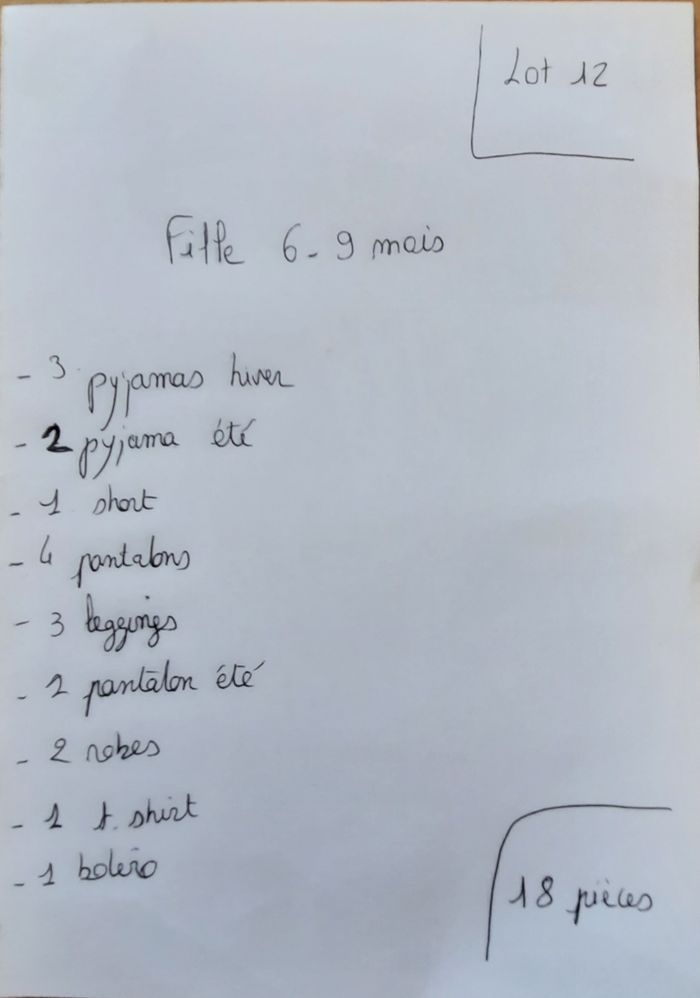 Lot 12
Fille 6-9 mois
- 3 pyjamas hiver
- 2 pyjama été
- 1 short
- 4 pantalons
- 3 leggings
- 1 pantalon été
- 2 robes
- 1 t.shirt
- 1 boléro
18 pièces